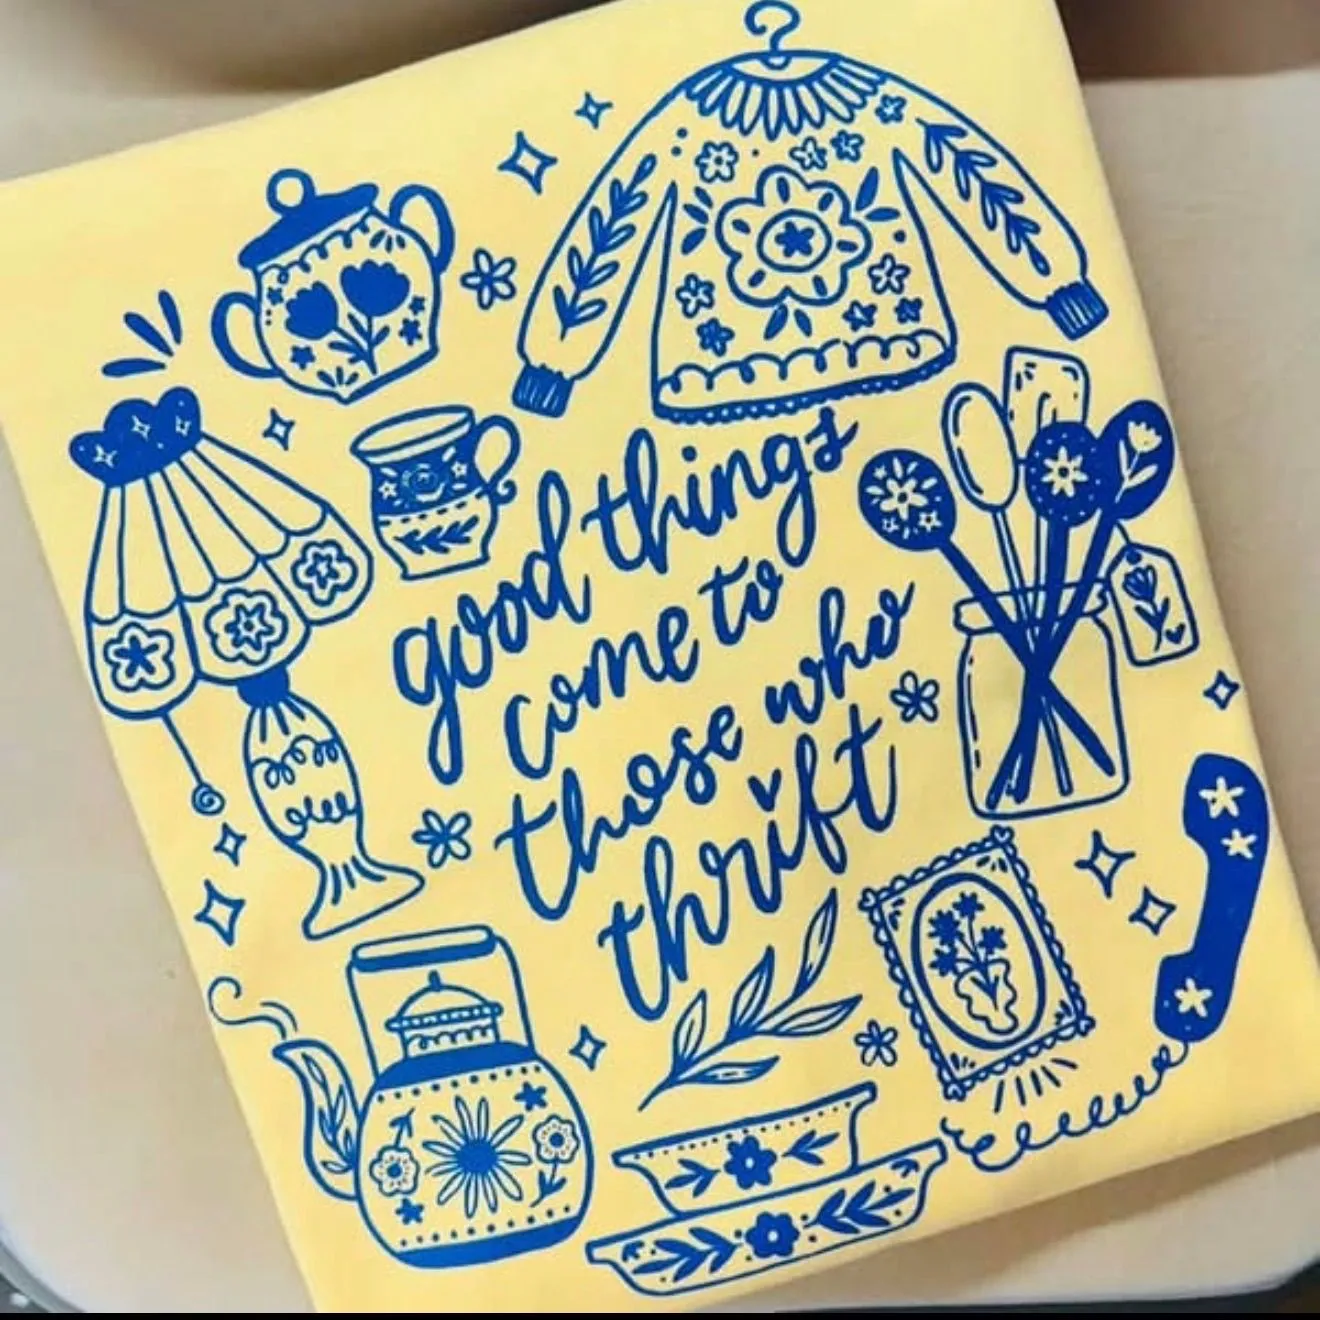 good things
come to
those who
thrift